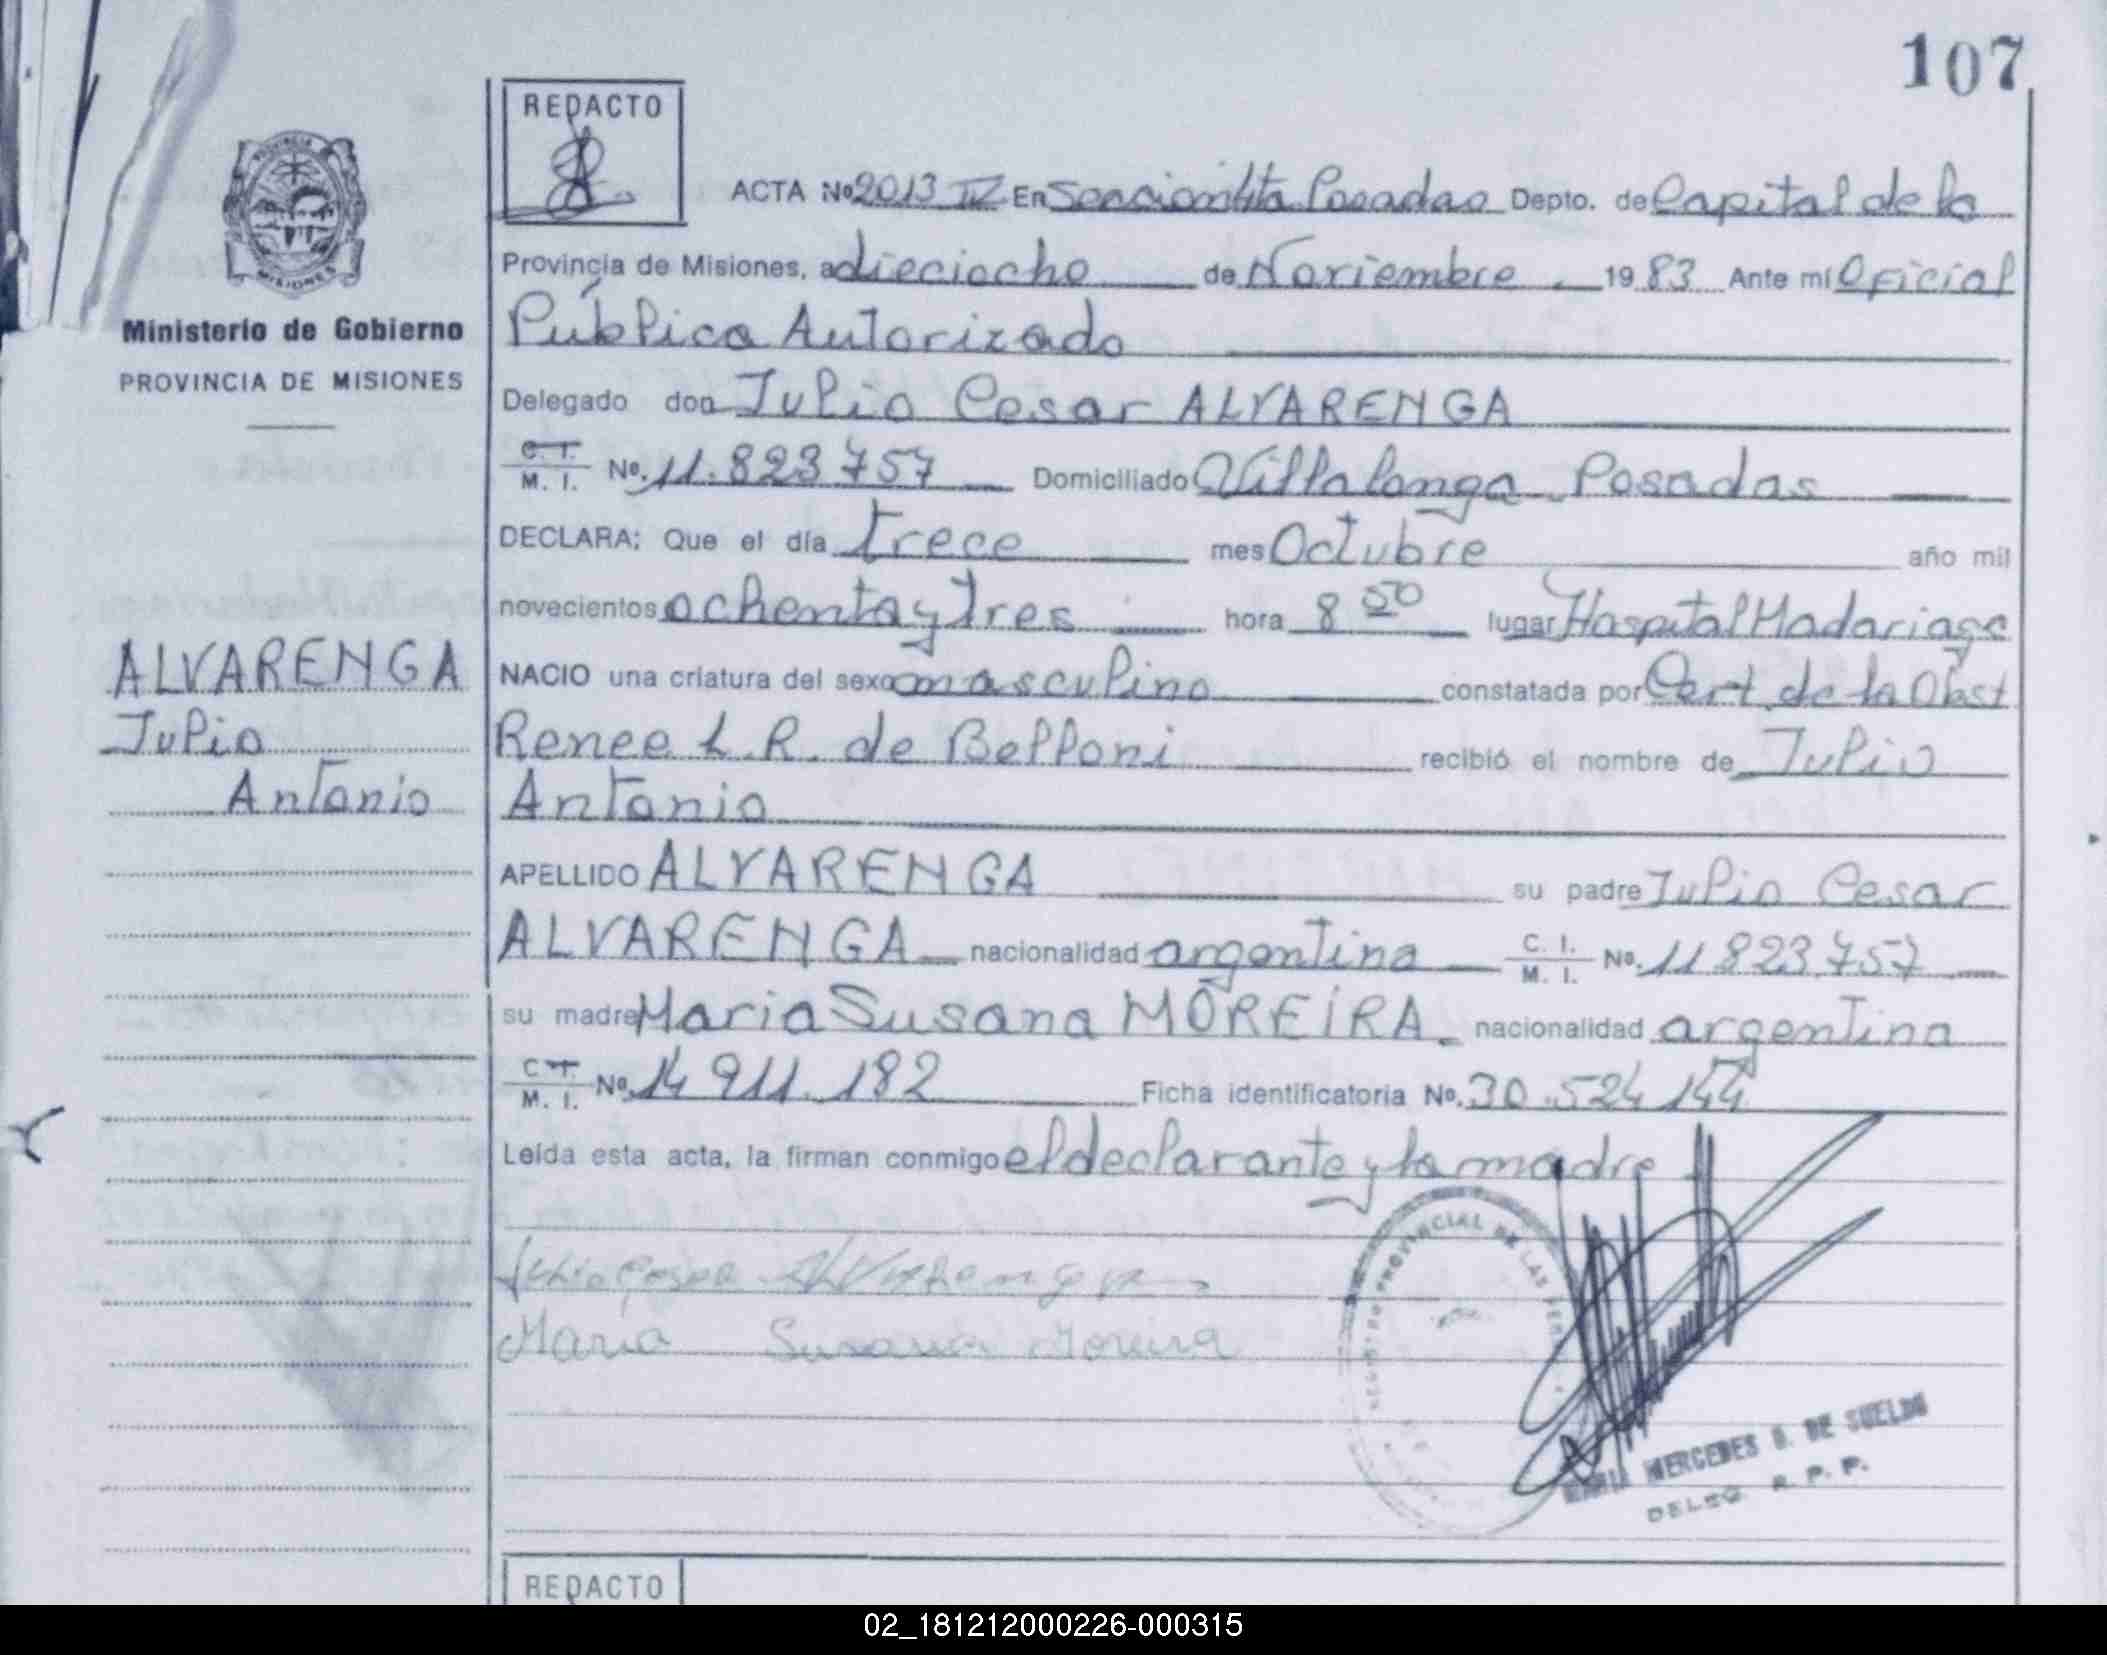 107
REDACTO
ACTA Nº 2013 IV En Sección 4ta Posadas Depto. de Capital de la
Provincia de Misiones, a dieciocho de Noviembre 1983 Ante mí Oficial
Público Autorizado
Ministerio de Gobierno
PROVINCIA DE MISIONES
Delegado don Julio Cesar ALVARENGA
C. I. M. I. Nº. 11.823.757 Domiciliado Villalonga Posadas
DECLARA: Que el día trece mes Octubre año mil
novecientos ochenta y tres hora 8 50 lugar Hospital Madariaga
ALVARENGA
Julio
Antonio
NACIO una criatura del sexo masculino constatada por Cert. de la Obst
Renee L. R. de Belloni recibió el nombre de Julio
Antonio
APELLIDO ALVARENGA su padre Julio Cesar
ALVARENGA nacionalidad argentina C. I. M. I. Nº. 11.823.757
su madre Maria Susana MOREIRA. nacionalidad argentina
C. I. M. I. Nº. 14 911.182 Ficha identificatoria Nº. 30.524 144
Leída esta acta, la firman conmigo el declarante y la madre
Julio Cesar Alvarenga
Maria Susana Moreira
PROVINCIAL DE LAS
MARIA MERCEDES G. DE SUELDO
DELEG. R. P. P.
REDACTO
02_181212000226-000315